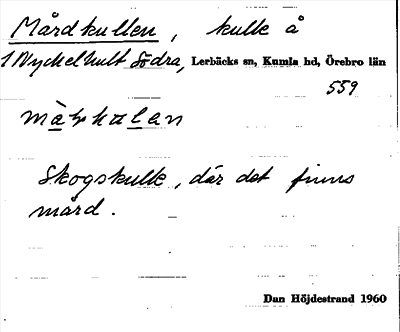 Mårdkullen, kulle å
1 Nyckelhult Södra, Lerbäcks sn, Kumla hd, Örebro län
559
Skogskulle, där det finns
mård.
Dan Höjdestrand 1960